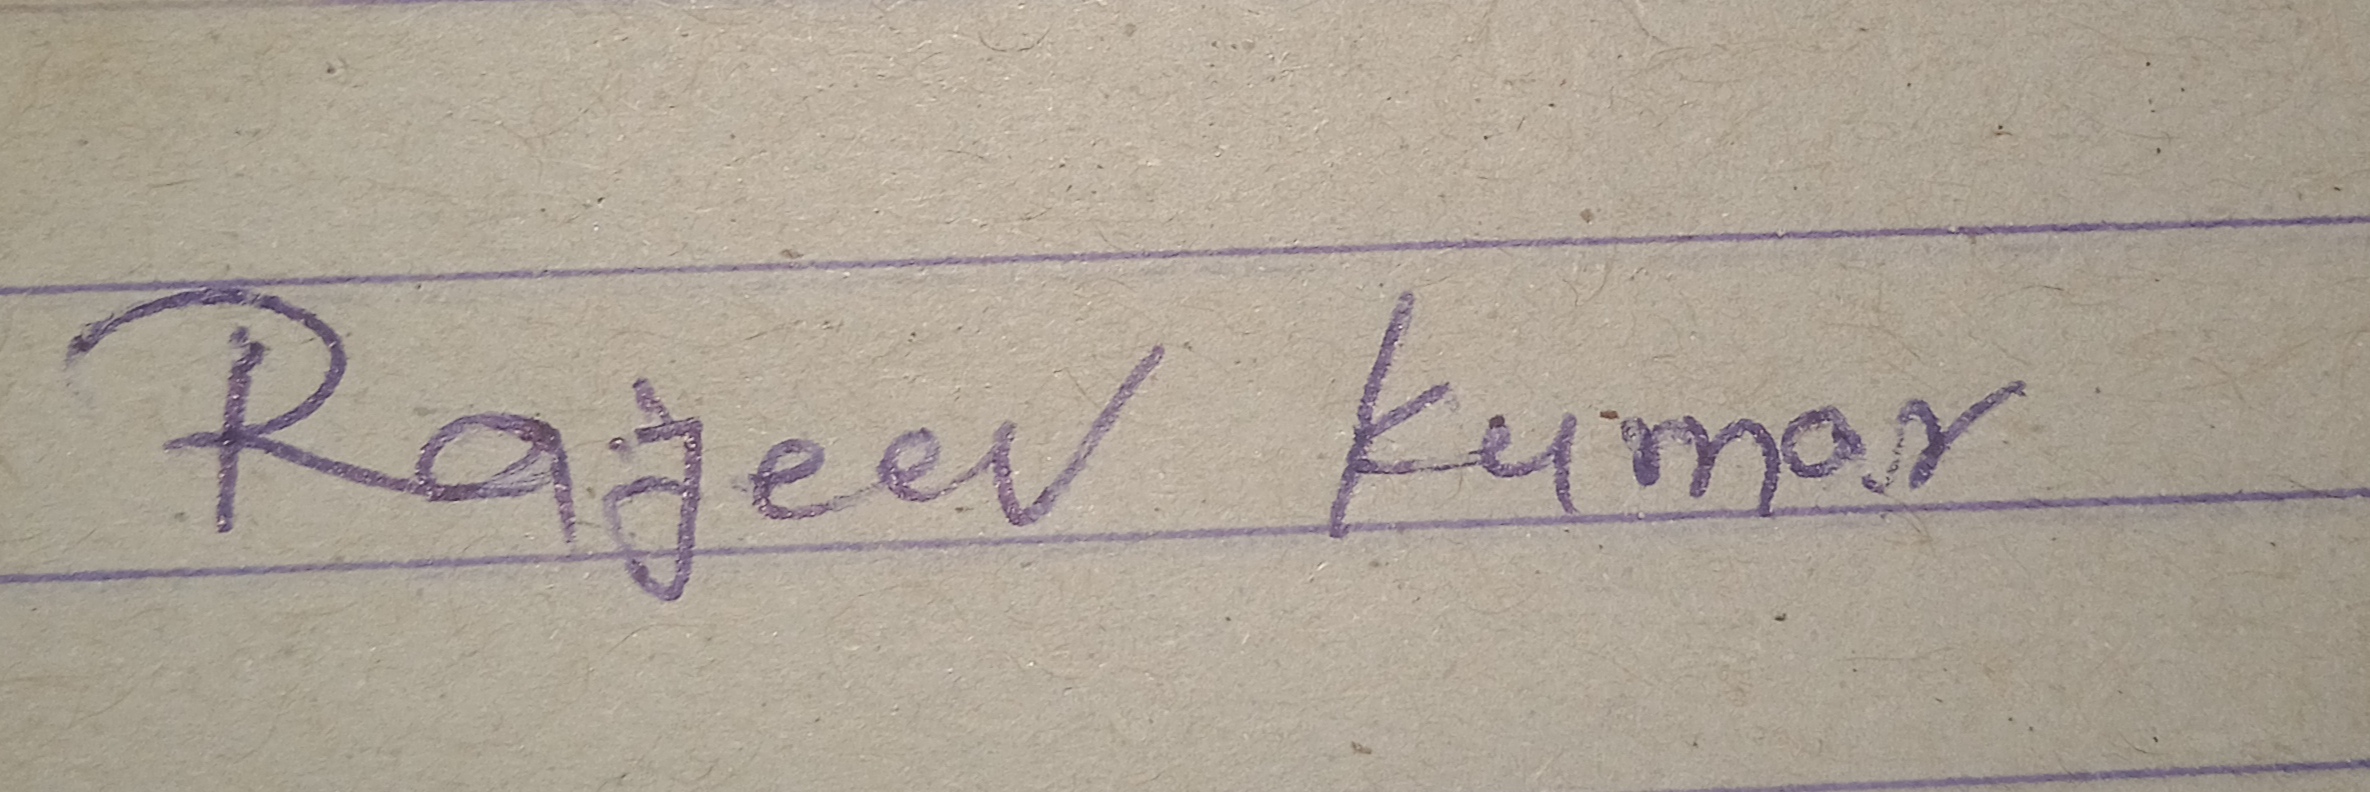 Rajeev Kumar